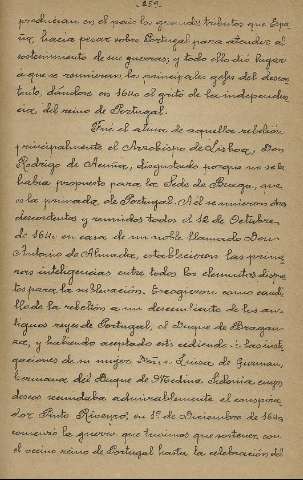 259.
producian en el pais los grandes tributos que Espa-
ña hacia pesar sobre Portugal para atender al
sostenimiento de sus guerras, y todo ello dió lugar
a que se reunieran los principales gefes del descon-
tento, dándose en 1640 el grito de la independen-
cia del reino de Portugal.
Fué el alma de aquella rebelión
principalmente el Arzobispo de Lisboa, Don
Rodrigo de Acuña, disgustado porque no se le
habia propuesto para la Sede de Braga, que
es la primada de Portugal. A él se unieron otros
descontentos y reunidos todos el 12 de Octubre
de 1640 en casa de un noble llamado Don
Antonio de Almada, establecieron las prime-
ras inteligencias entre todos los elementos dispues-
tos para la sublevación. Escogieron como caudi-
llo de la rebelión a un descendiente de los an-
tiguos reyes de Portugal, el Duque de Bragan-
za, y habiendo aceptado este cediendo a las insti-
gaciones de su mujer Dña. Luisa de Guzman,
hermana del Duque de Medina Sidonia cuyos
deseos secundaba admirablemente el conspira-
dor Pinto Riveiro, en 1º de Diciembre de 1640
comenzó la guerra que tuvimos que sostener con
el vecino reino de Portugal hasta la celebración del